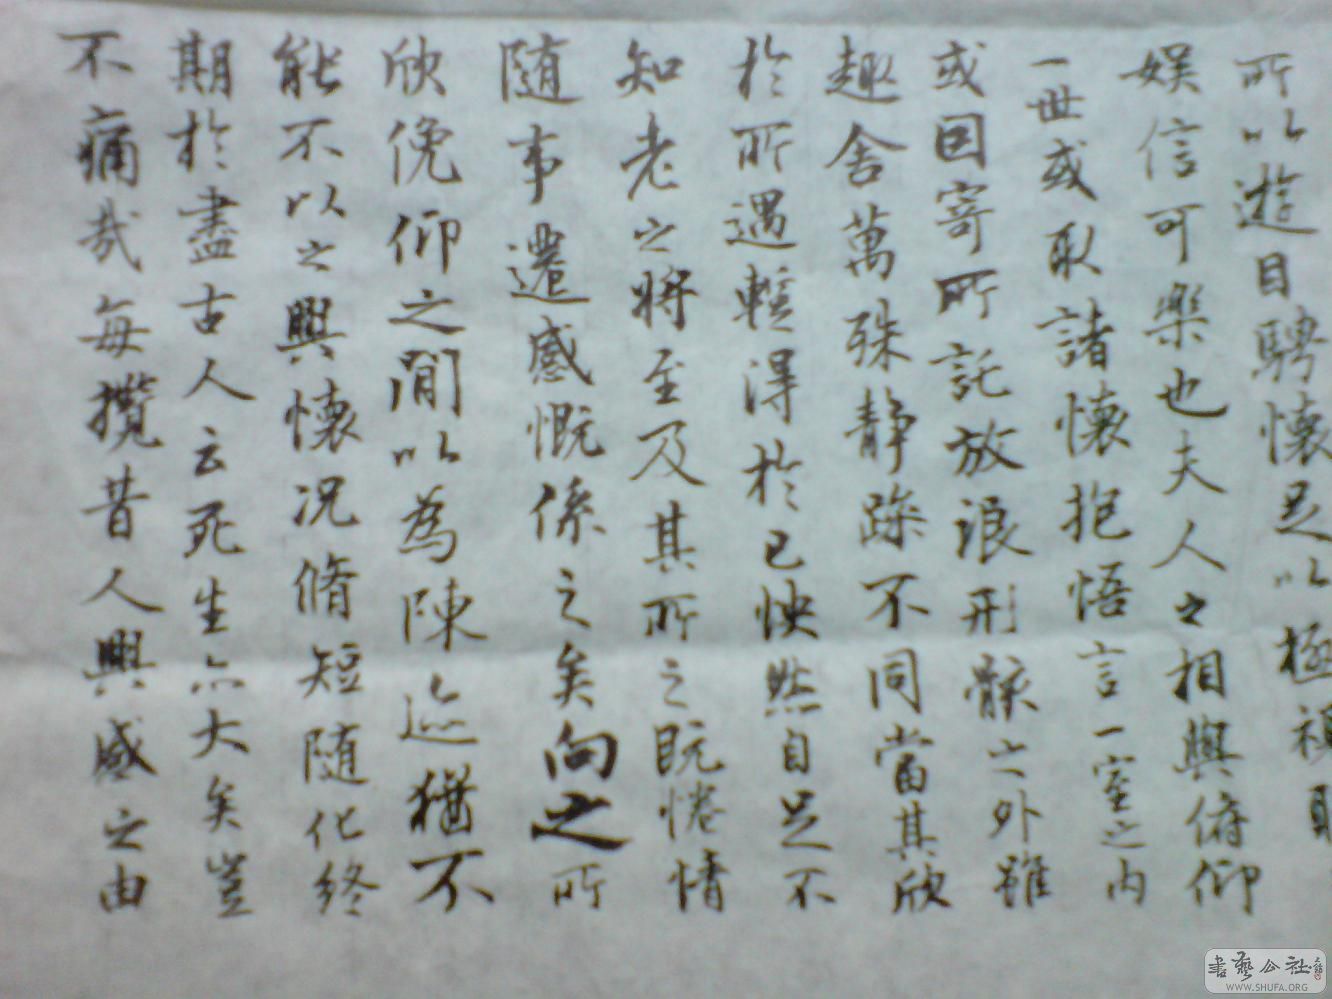 所以遊目騁懷足以極視
娱信可樂也夫人之相與俯仰
一世或取諸懷抱悟言一室之内
或因寄所託放浪形骸之外雖
趣舍萬殊静躁不同當其欣
於所遇蹔得於己怏然自足不
知老之將至及其所之既惓情
随事遷感慨係之矣向之所
欣俛仰之閒以為陳迹猶不
能不以之興懷况脩短随化終
期於盡古人云死生亦大矣豈
不痛哉每攬昔人興感之由
書藝公社
WWW.SHUFA.ORG